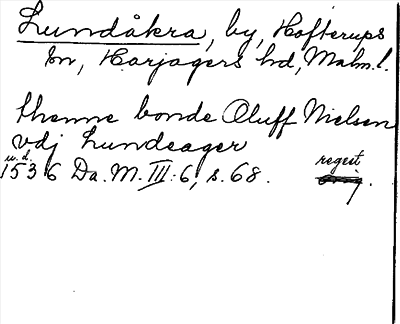 Lundåkra, by, Hofterups
sn, Harjagers hd, Malm.l.
thenne bonde Oluff Nielsen
vdj Lundeager
u.d.
1536 Da. M. III:6, s. 68. regest
orig.